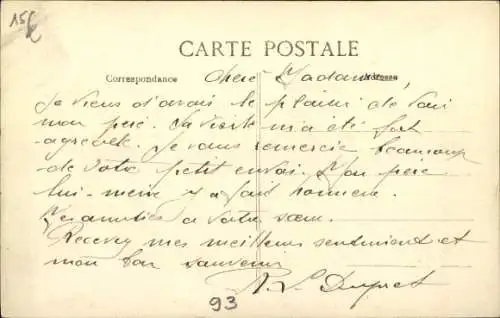 15f
CARTE POSTALE
Correspondance
Adresse
Chère Madame,
Je viens d'avoir le plaisir de voir
mon père. Sa visite m'a été fort
agréable. Je vous remercie beaucoup
de votre petit envoi. Mon père
lui-même y a fait honneur.
Mes amitiés à votre sœur.
Recevez mes meilleurs sentiments et
mon bon souvenir
93